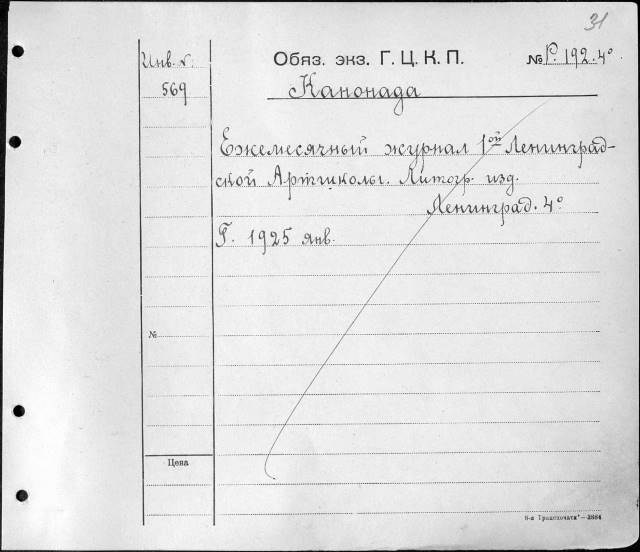 31
Инв. №
569
Обяз. экз. Г. Ц. К. П.
№ Р. 192. 4°
Канонада
Ежемесячный журнал 1ой Ленинград-
ской Артшколы. Литогр. изд.
Ленинград. 4°
Г. 1925 янв.
№
Цена